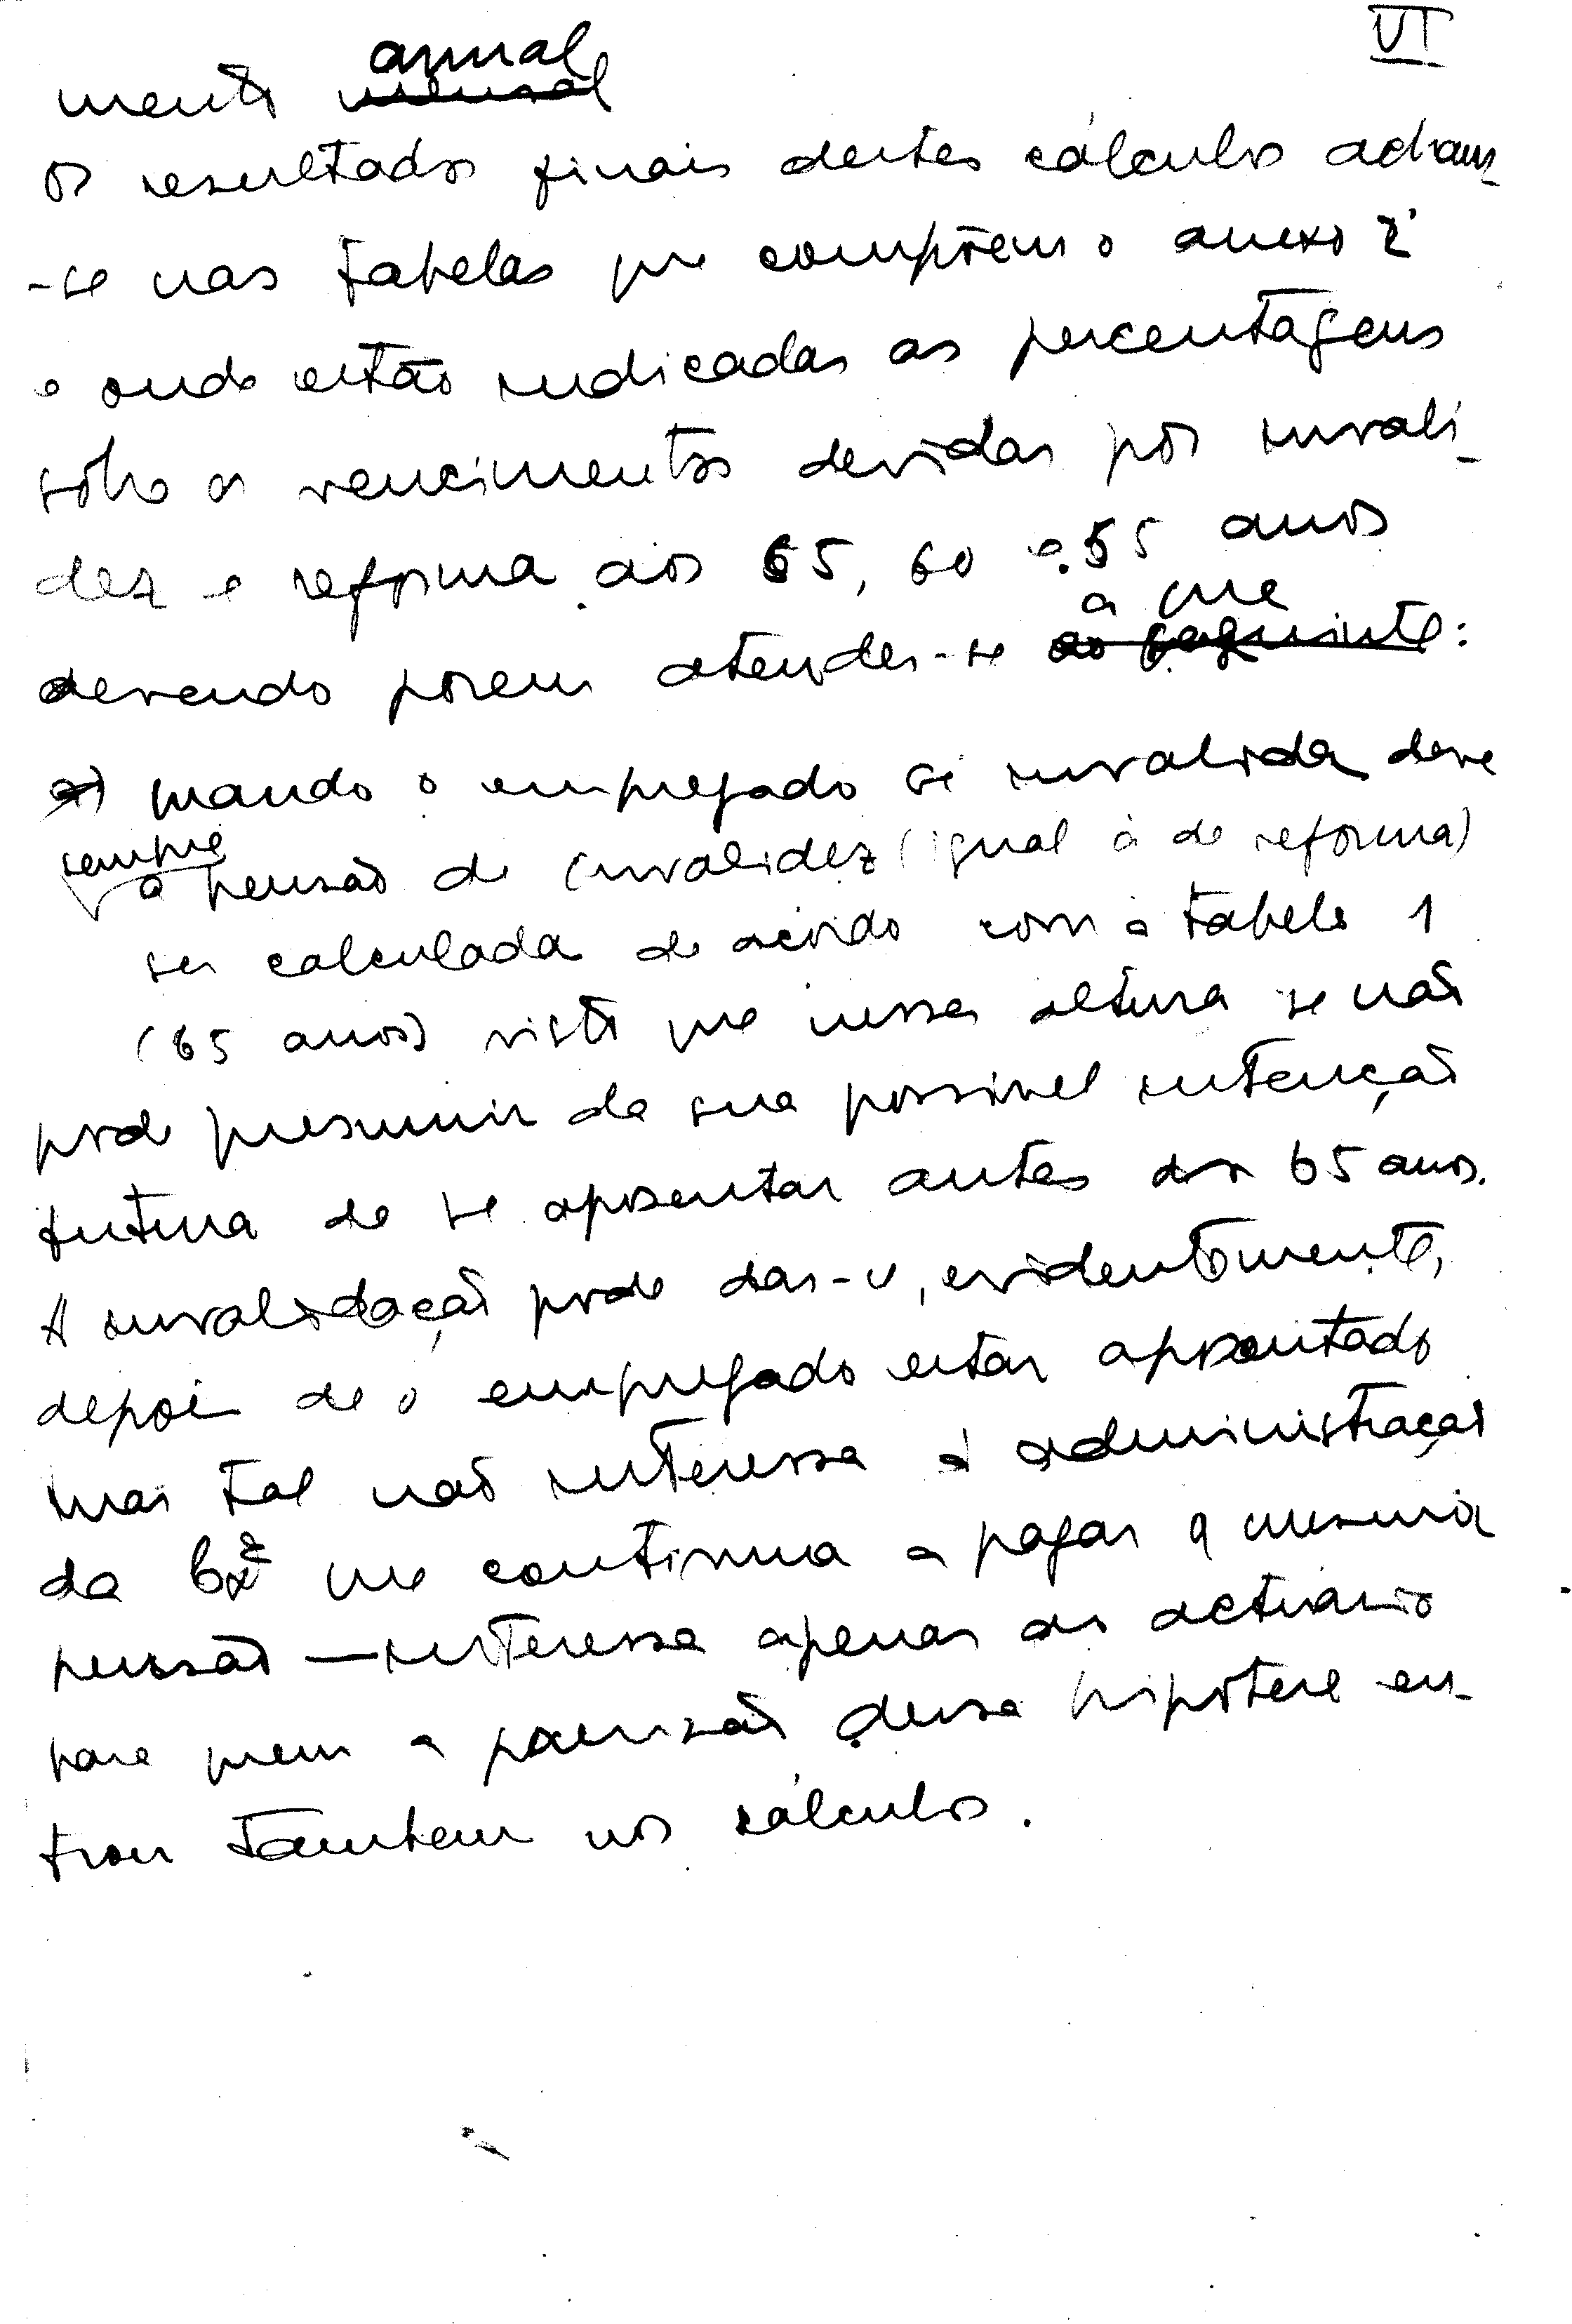 VI
mento anual mensal
Os resultados finais destes cálculos acham-
-se nas tabelas que compõem o anexo 2
e onde estão indicadas as percentagens
sôbre os vencimentos devidas por invali-
dez e reforma aos 65, 60 e 55 anos
devendo porem atender-se a que ao seguinte:
a) quando o empregado se invalida deve
sempre a pensão de invalidez (igual à de reforma)
ser calculada de acôrdo com a tabela 1
(65 anos) visto que nessa altura se não
pode presumir da sua possivel intenção
futura de se aposentar antes dos 65 anos.
A invalidação pode dar-se, evidentemente,
depois de o empregado estar aposentado
mas tal não interessa à administração
da Cxª que continua a pagar a mesma
pensão — interessa apenas ao actuário
para quem a previsão dessa hipótese en-
trou tambem nos cálculos.